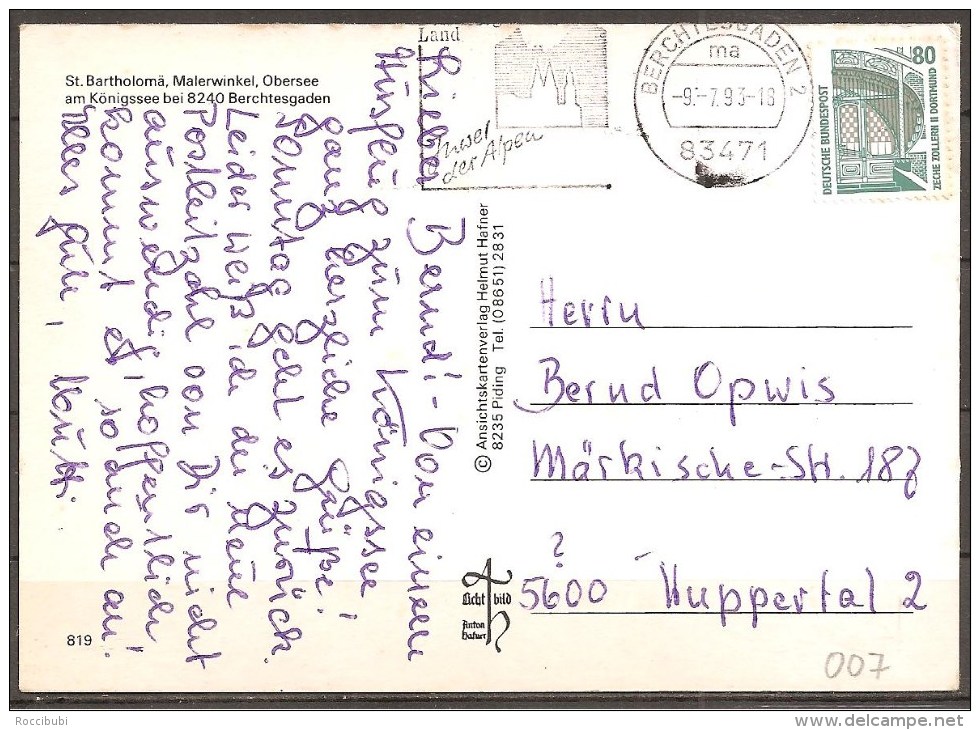 St. Bartholomä, Malerwinkel, Obersee
am Königssee bei 8240 Berchtesgaden
Land
Insel
der Alpen
BERCHTESGADEN 2
ma
-9.-7.93-18
83471
80
DEUTSCHE BUNDESPOST
ZECHE ZOLLERN II DORTMUND
Lieber Bernd! - Von einem
Ausflug zum Königssee
ganz herzliche Grüße!
Sonntag geht es zurück.
Leider weiß ich die neue
Postleitzahl von Dir nicht
auswendig, hoffentlich
kommt es so auch an!
Alles Gute,
© Ansichtskartenverlag Helmut Hafner
8235 Piding Tel. (08651) 2831
Herrn
Bernd Opwis
Märkische-Str. 187
?
5600 Wuppertal 2
Licht bild
Anton
Hafner
819
007
Roccibubi
www.delcampe.net